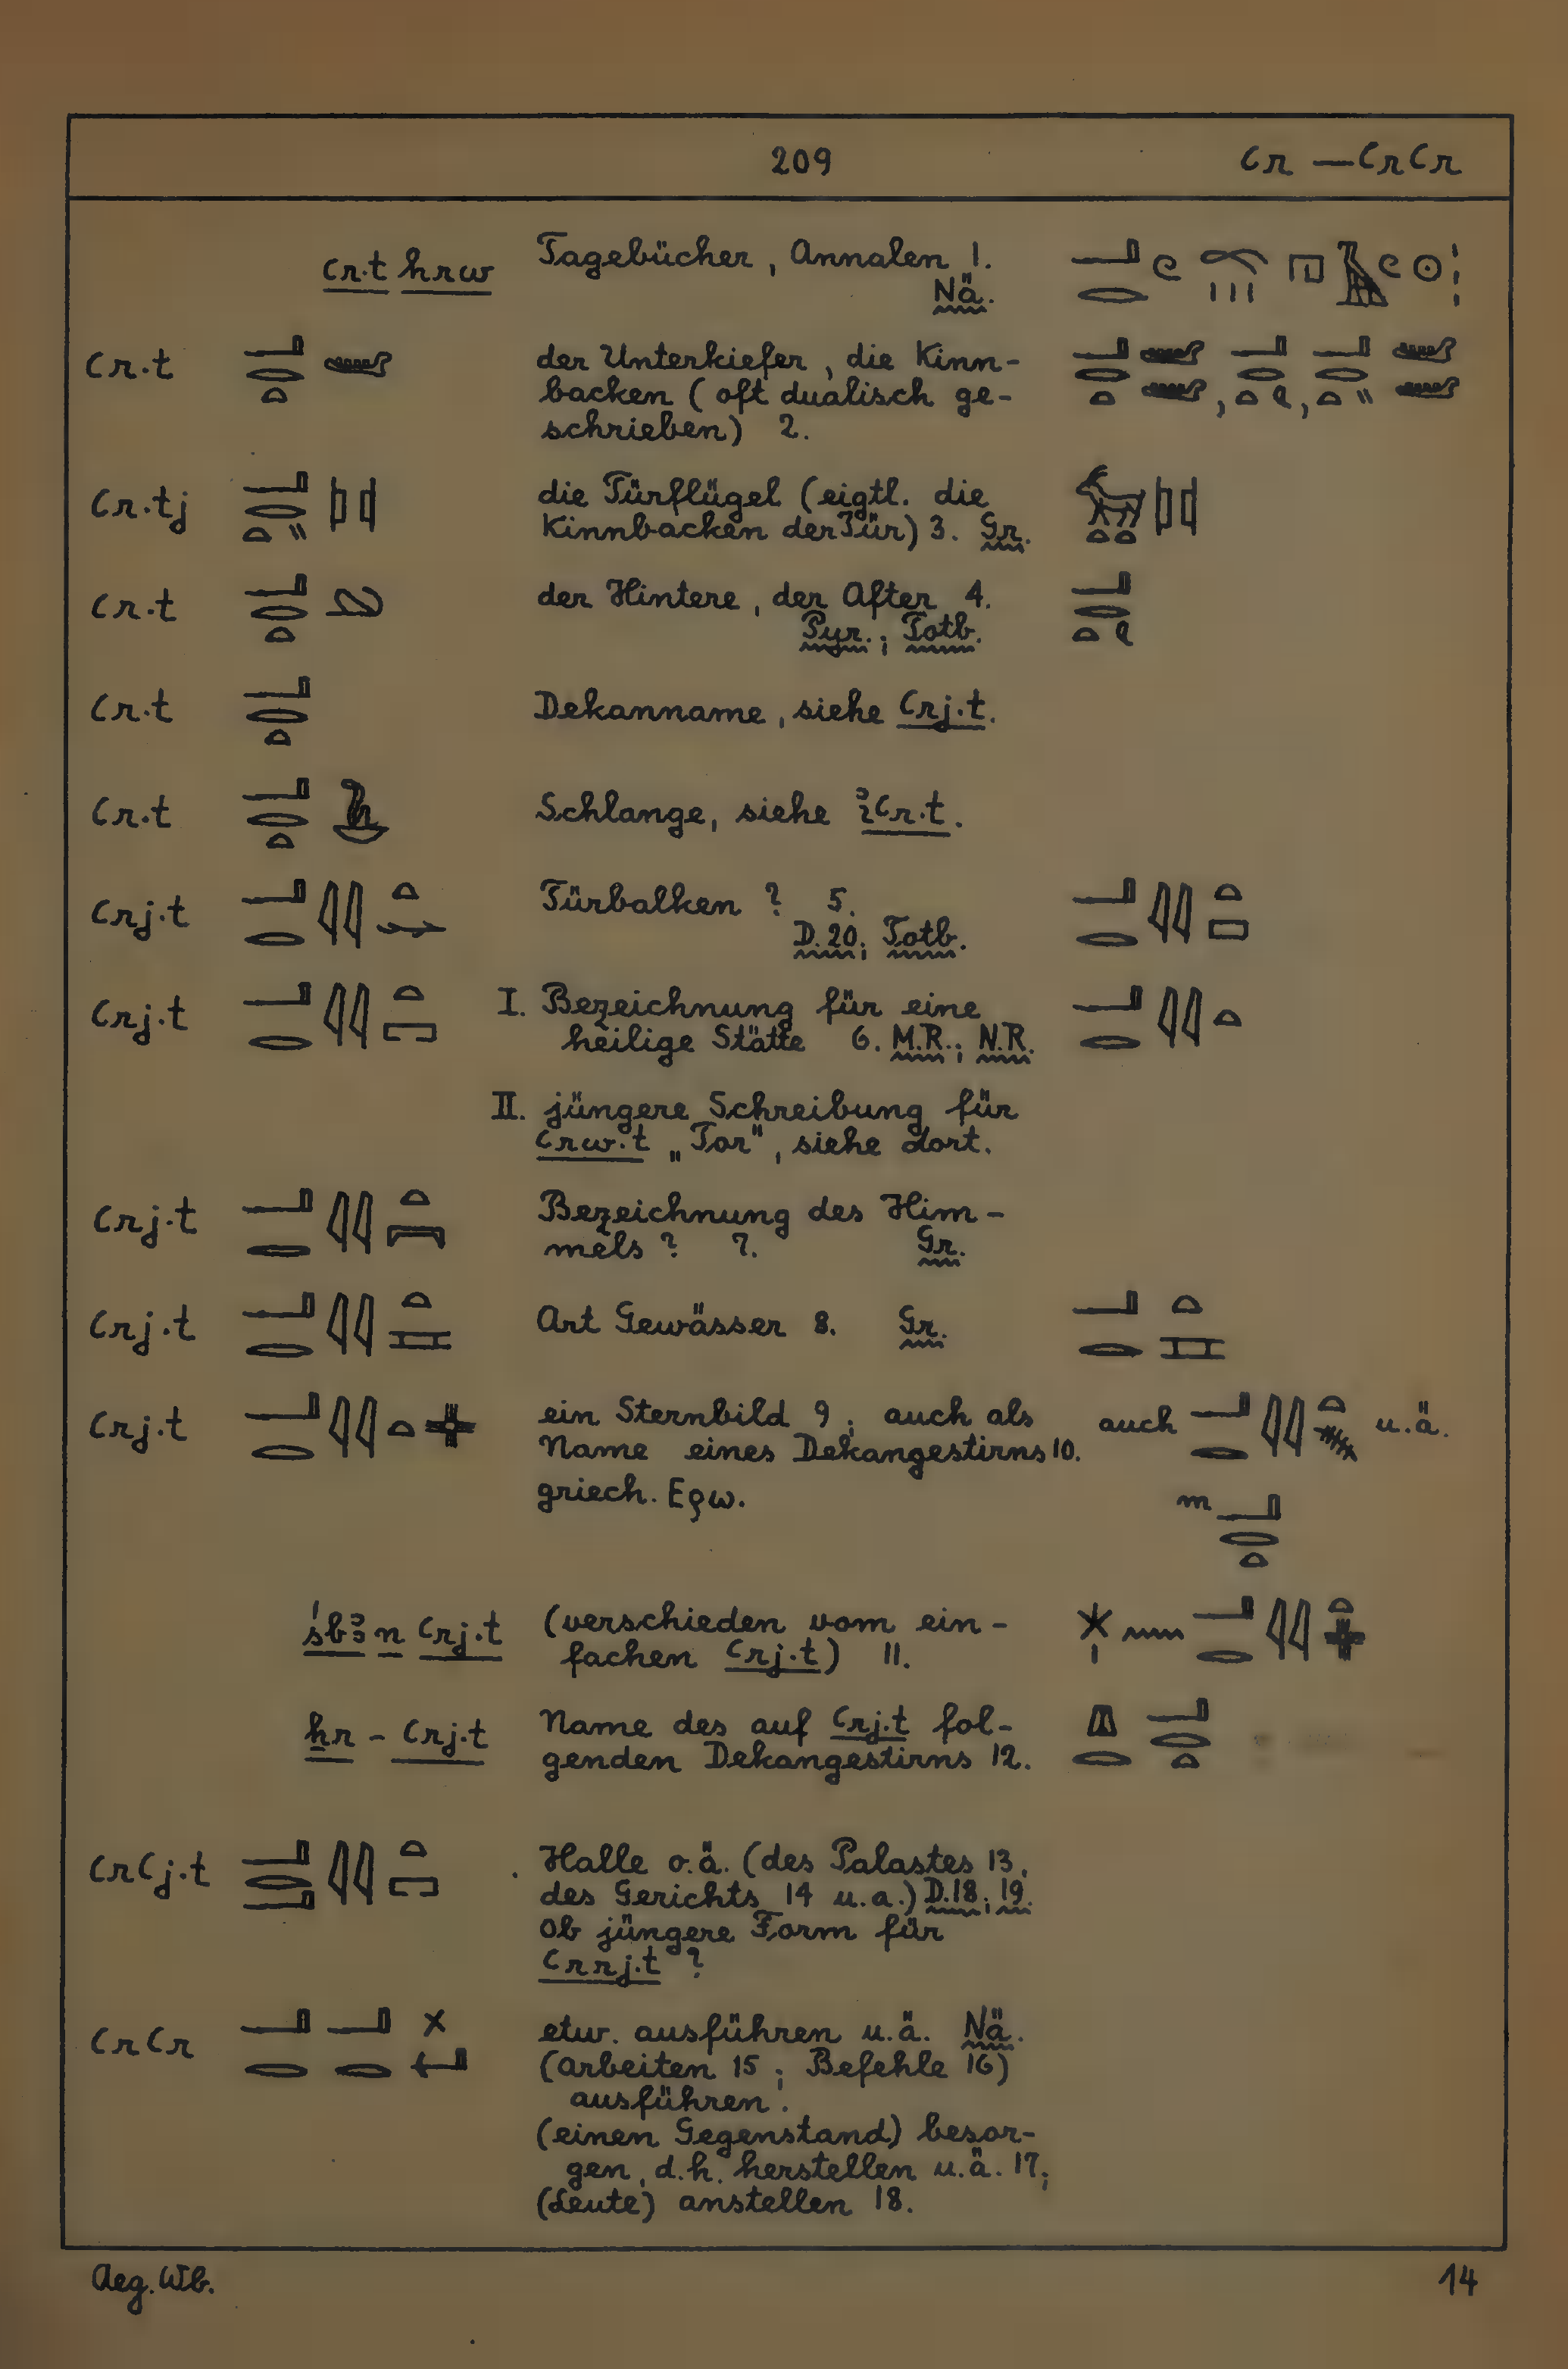 209 ꜥr — ꜥrꜥr
ꜥr.t hrw Tagebücher, Annalen 1.
Nä.
ꜥr.t der Unterkiefer, die Kinn-
backen (oft dualisch ge-
schrieben) 2.
ꜥr.tj die Türflügel (eigtl. die
Kinnbacken der Tür) 3. Gr.
ꜥr.t der Hintere, der After 4.
Pyr.; Totb.
ꜥr.t Dekanname, siehe ꜥrj.t.
ꜥr.t Schlange, siehe iꜥr.t.
ꜥrj.t Türbalken ? 5.
D.20; Totb.
ꜥrj.t I. Bezeichnung für eine
heilige Stätte 6. M.R.; N.R.
II. jüngere Schreibung für
ꜥrw.t „Tor", siehe dort.
ꜥrj.t Bezeichnung des Him-
mels ? 7. Gr.
ꜥrj.t Art Gewässer 8. Gr.
ꜥrj.t ein Sternbild 9; auch als auch u.ä.
Name eines Dekangestirns 10.
griech. Ερω. m
śbꜣ n ꜥrj.t (verschieden vom ein-
fachen ꜥrj.t) 11.
ẖr - ꜥrj.t Name des auf ꜥrj.t fol-
genden Dekangestirns 12.
ꜥrꜥj.t Halle o.ä. (des Palastes 13,
des Gerichts 14 u.a.) D.18; 19.
Ob jüngere Form für
ꜥrrj.t ?
ꜥrꜥr etw. ausführen u.ä. Nä.
(Arbeiten 15; Befehle 16)
ausführen;
(einen Gegenstand) besor-
gen, d.h. herstellen u.ä. 17;
(Leute) anstellen 18.
Aeg. Wb. 14